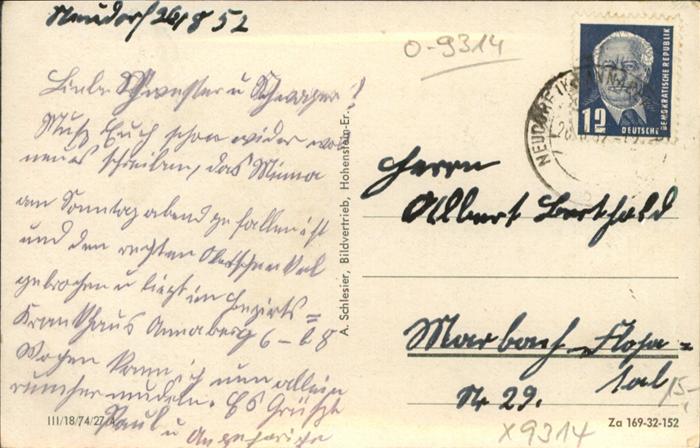 Neudorf 26/8 52
Liebe Schwester u Schwager!
Muß Euch schon wider was
neues schreiben, das Minna
am Sonntag abend gefallen ist
und den rechten Oberschenkel
gebrochen u liegt im Bezirks=
Krankhaus Annaberg 6-8
Wochen kann ich nun allein
rumher nudeln. Es Grüßt
Paul
u Angehörige
III/18/74/27
A. Schlesier, Bildvertrieb, Hohenstein-Er.
O-9314
12
DEUTSCHE
DEMOKRATISCHE REPUBLIK
NEUDORF
Herrn
Albert Berthold
Marbach-Flöha=
tal
Nr 29.
15-
X9314
Za 169-32-152